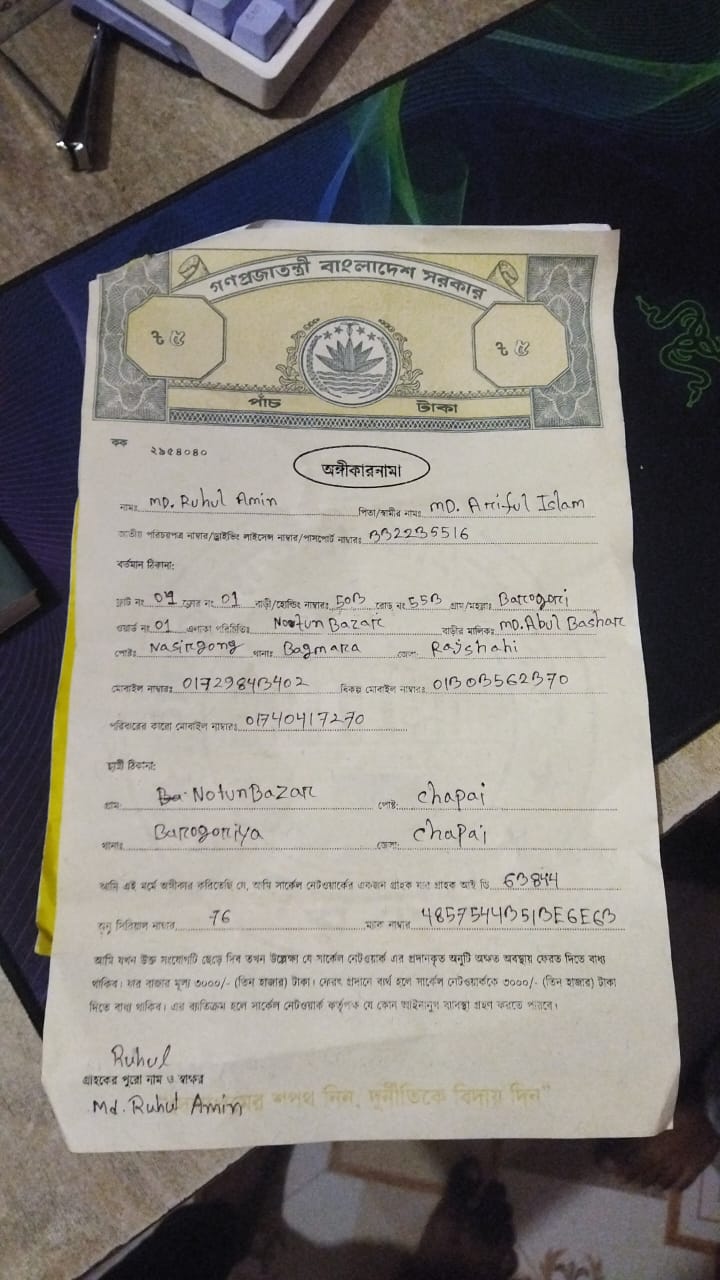 গণপ্রজাতন্ত্রী বাংলাদেশ সরকার
৳ ৫ ৳ ৫
পাঁচ টাকা
কক ২৯৫৪০৪০
অঙ্গীকারনামা
নামঃ MD. Ruhul Amin পিতা/স্বামীর নামঃ MD. Ariful Islam
জাতীয় পরিচয়পত্র নাম্বার/ড্রাইভিং লাইসেন্স নাম্বার/পাসপোর্ট নাম্বারঃ 332235516
বর্তমান ঠিকানা:
ফ্লাট নং 04 ফ্লোর নং 01 বাড়ী/হোল্ডিং নাম্বারঃ 503 রোড নং 553 গ্রাম/মহল্লাঃ Barogori
ওয়ার্ড নং 01 এলাকা পরিচিতিঃ Notun Bazar বাড়ীর মালিকঃ MD. Abul Bashar
পোষ্টঃ Nasirgong থানাঃ Bagmara জেলা: Rajshahi
মোবাইল নাম্বারঃ 01729843402 বিকল্প মোবাইল নাম্বারঃ 01303562370
পরিবারের কারো মোবাইল নাম্বারঃ 01740417270
স্থায়ী ঠিকানা:
গ্রাম: Notun Bazar পোষ্ট: chapai
থানাঃ Barogoriya জেলা: chapai
আমি এই মর্মে অঙ্গীকার করিতেছি যে, আমি সার্কেল নেটওয়ার্কের একজন গ্রাহক যার গ্রাহক আই ডি 63844
অনু সিরিয়াল নাম্বার 76 ম্যাক নাম্বার 485754443513E6E63
আমি যখন উক্ত সংযোগটি ছেড়ে দিব তখন উল্লেক্ষ্য যে সার্কেল নেটওয়ার্ক এর প্রদানকৃত অনুটি অক্ষত অবস্থায় ফেরত দিতে বাধ্য
থাকিব। যার বাজার মূল্য ৩০০০/- (তিন হাজার) টাকা। ফেরৎ প্রদানে ব্যর্থ হলে সার্কেল নেটওয়ার্ককে ৩০০০/- (তিন হাজার) টাকা
দিতে বাধ্য থাকিব। এর ব্যতিক্রম হলে সার্কেল নেটওয়ার্ক কর্তৃপক্ষ যে কোন আইনানুগ ব্যবস্থা গ্রহণ করতে পারবে।
Ruhul
গ্রাহকের পুরো নাম ও স্বাক্ষর
Md. Ruhul Amin
শপথ নিন, দুর্নীতিকে বিদায় দিন"